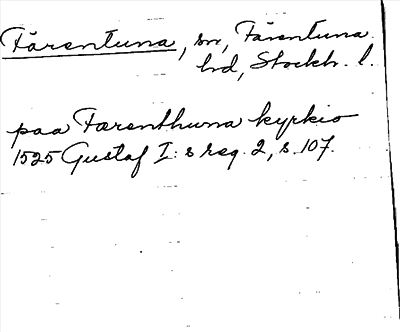 Färentuna, sn, Färentuna
hd, Stockh. l.
paa Farenthuna kyrkio
1525 Gustaf I:s reg. 2, s. 107.